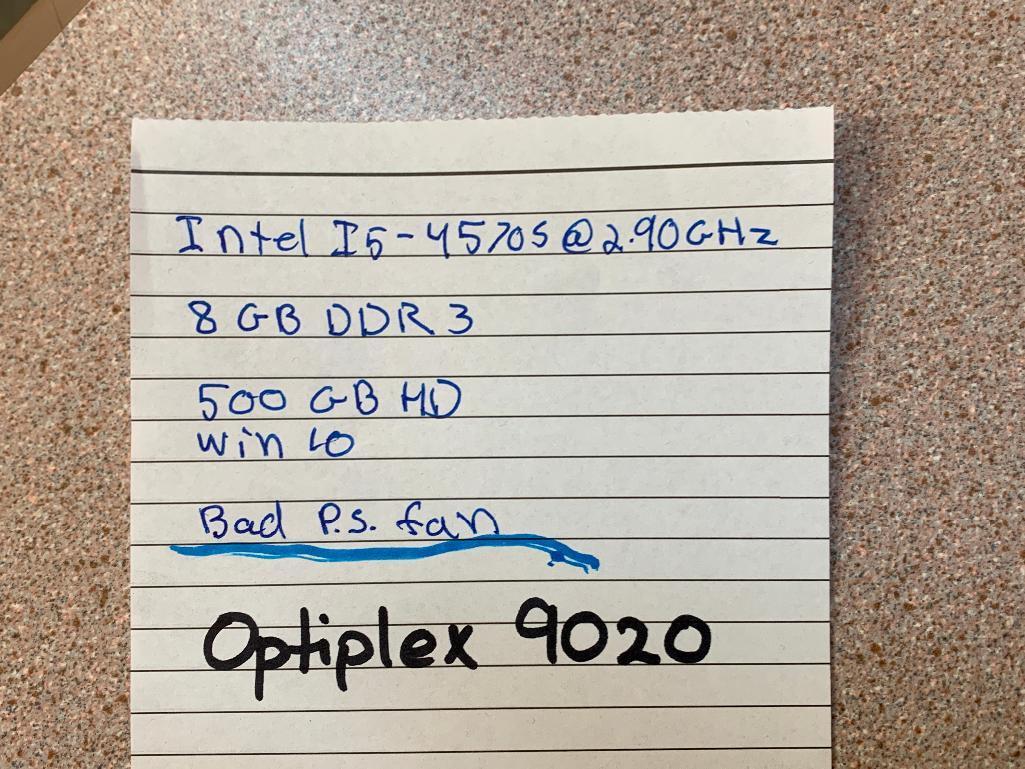 Intel I5-4570S @ 2.90GHz
8 GB DDR3
500 GB HD
Win 10
Bad P.S. fan
Optiplex 9020